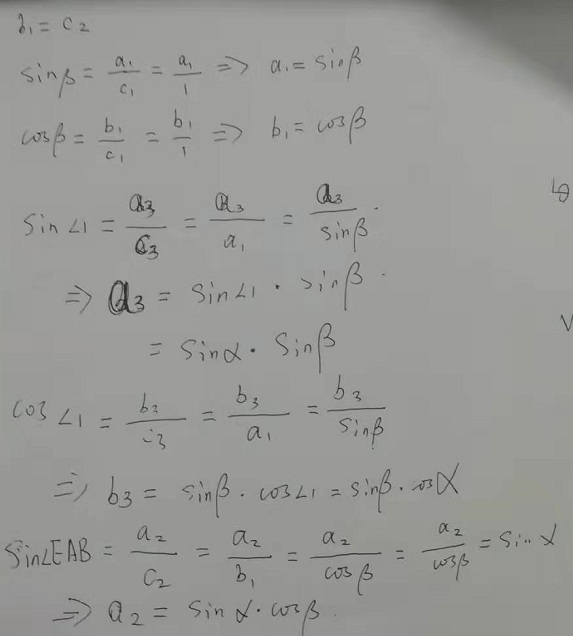 b₁ = c₂
sinβ = a₁/c₁ = a₁/1 => a₁ = sinβ
cosβ = b₁/c₁ = b₁/1 => b₁ = cosβ
sin∠1 = a₃/c₃ = a₃/a₁ = a₃/sinβ
=> a₃ = sin∠1 · sinβ
= sinα · sinβ
cos∠1 = b₃/c₃ = b₃/a₁ = b₃/sinβ
=> b₃ = sinβ · cos∠1 = sinβ · cosα
sin∠EAB = a₂/c₂ = a₂/b₁ = a₂/cosβ = a₂/cosβ = sinα
=> a₂ = sinα · cosβ.